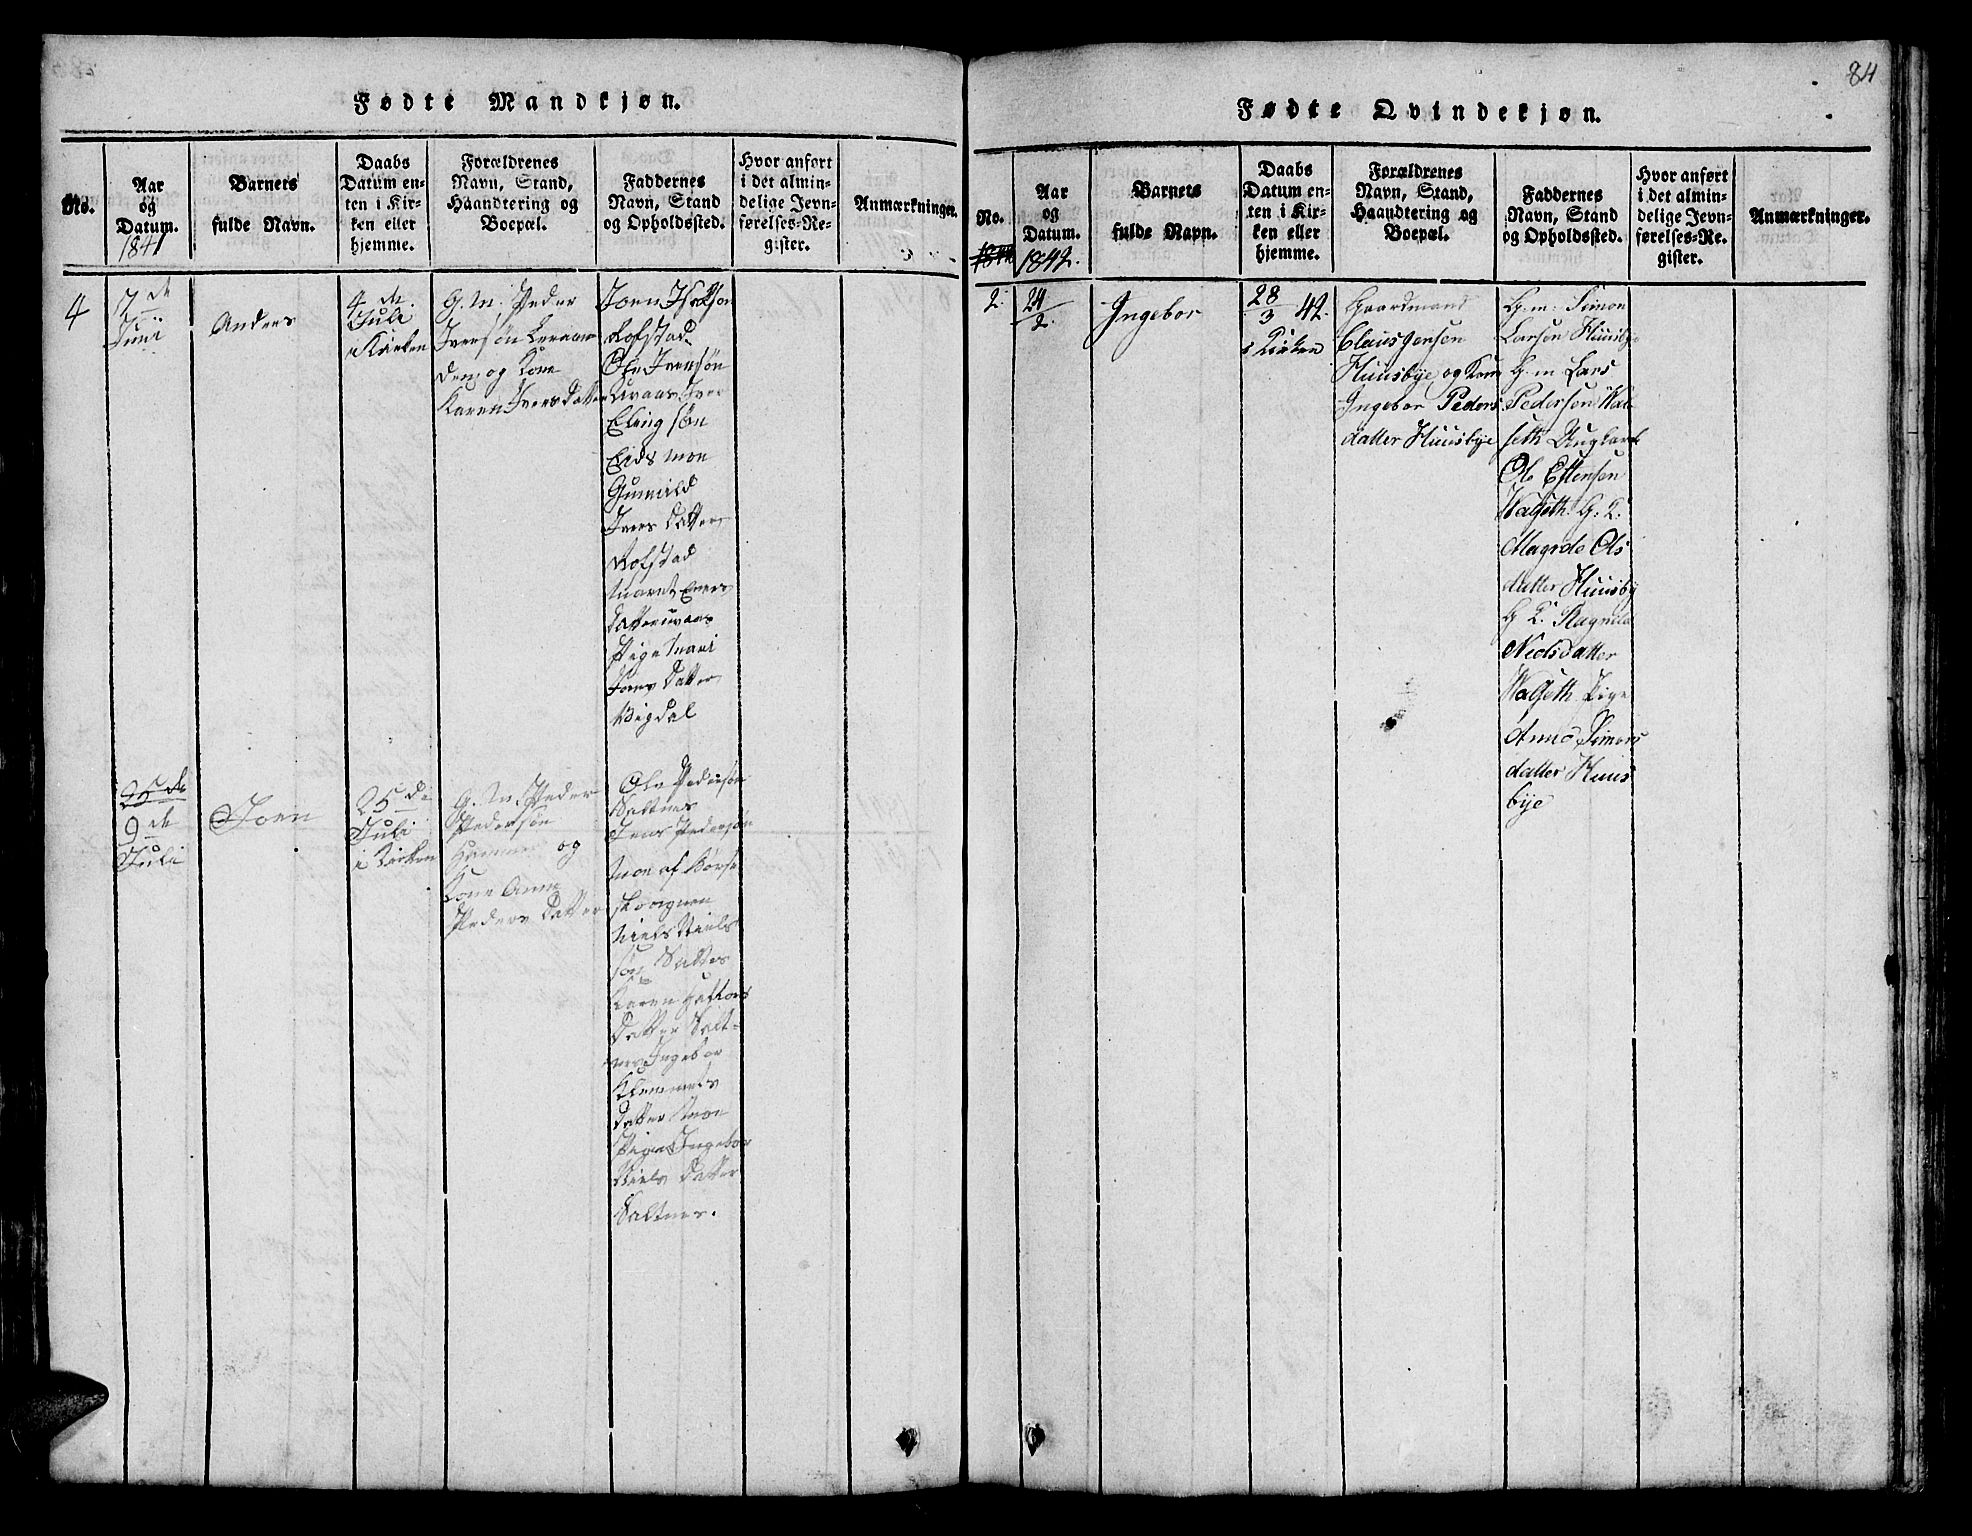 84
Fødte Mandkjøn.
No.
Aar
og
Datum.
1841
Barnets
fulde Navn.
Daabs
Datum en-
ten i Kir-
ken eller
hjemme.
Forældrenes
Navn, Stand,
Haandtering og
Boepæl.
Faddernes
Navn, Stand
og Opholdssted.
Hvor anført
i det almin-
delige Jevn-
førelses-Re-
gister.
Anmærkninger.
4
7 de
Juni
Anders
4 de
Juli
i Kirken
G. M. Peder
Iversøn
og Kone
Karen Ivers Datter
Joen
Rofstad
Ole Iversøn
Iver
Elling søn
Eids moe
Gunnild
Ivers Datter
Rofstad
Maret
Datter
Pige Mari
Joens Datter
Vigdal
25 de
9 de
Juli
Joen
25 de
Juli
i Kirken
G. M. Peder
Pedersøn
Hammer og
Kone Anne
Peders Datter
Ole Pedersøn
Saltnes
Jens Pedersøn
Moe af Børse
skougnen
Niels Niels
søn Saltnes
Karen
Datter Salt-
nes Ingebor
Klemmets
Datter Moe
Pigen Ingebor
Niels Datter
Saltnes.
Fødte Qvindekjøn.
No.
Aar
og
Datum.
1842.
Barnets
fulde Navn.
Daabs
Datum en-
ten i Kir-
ken eller
hjemme.
Forældrenes
Navn, Stand,
Haandtering og
Boepæl.
Faddernes
Navn, Stand
og Opholdssted.
Hvor anført
i det almin-
delige Jevn-
førelses-Re-
gister.
Anmærkninger.
2.
24/2.
Ingebor
28/3 42.
i Kirken
Gaardmand
Claus Jensen
Huusbye og Kone
Ingebor Peders
datter Huusbye
G. m. Simon
Larsen Huusbye
G. m Lars
Pedersen Wal
seth Ungkarl
Ole Estensen
Walseth G. K.
Magrde Ols
datter Huusby
G K.
Nielsdatter
Walseth Pige
Anne Simons
datter Huus
bye